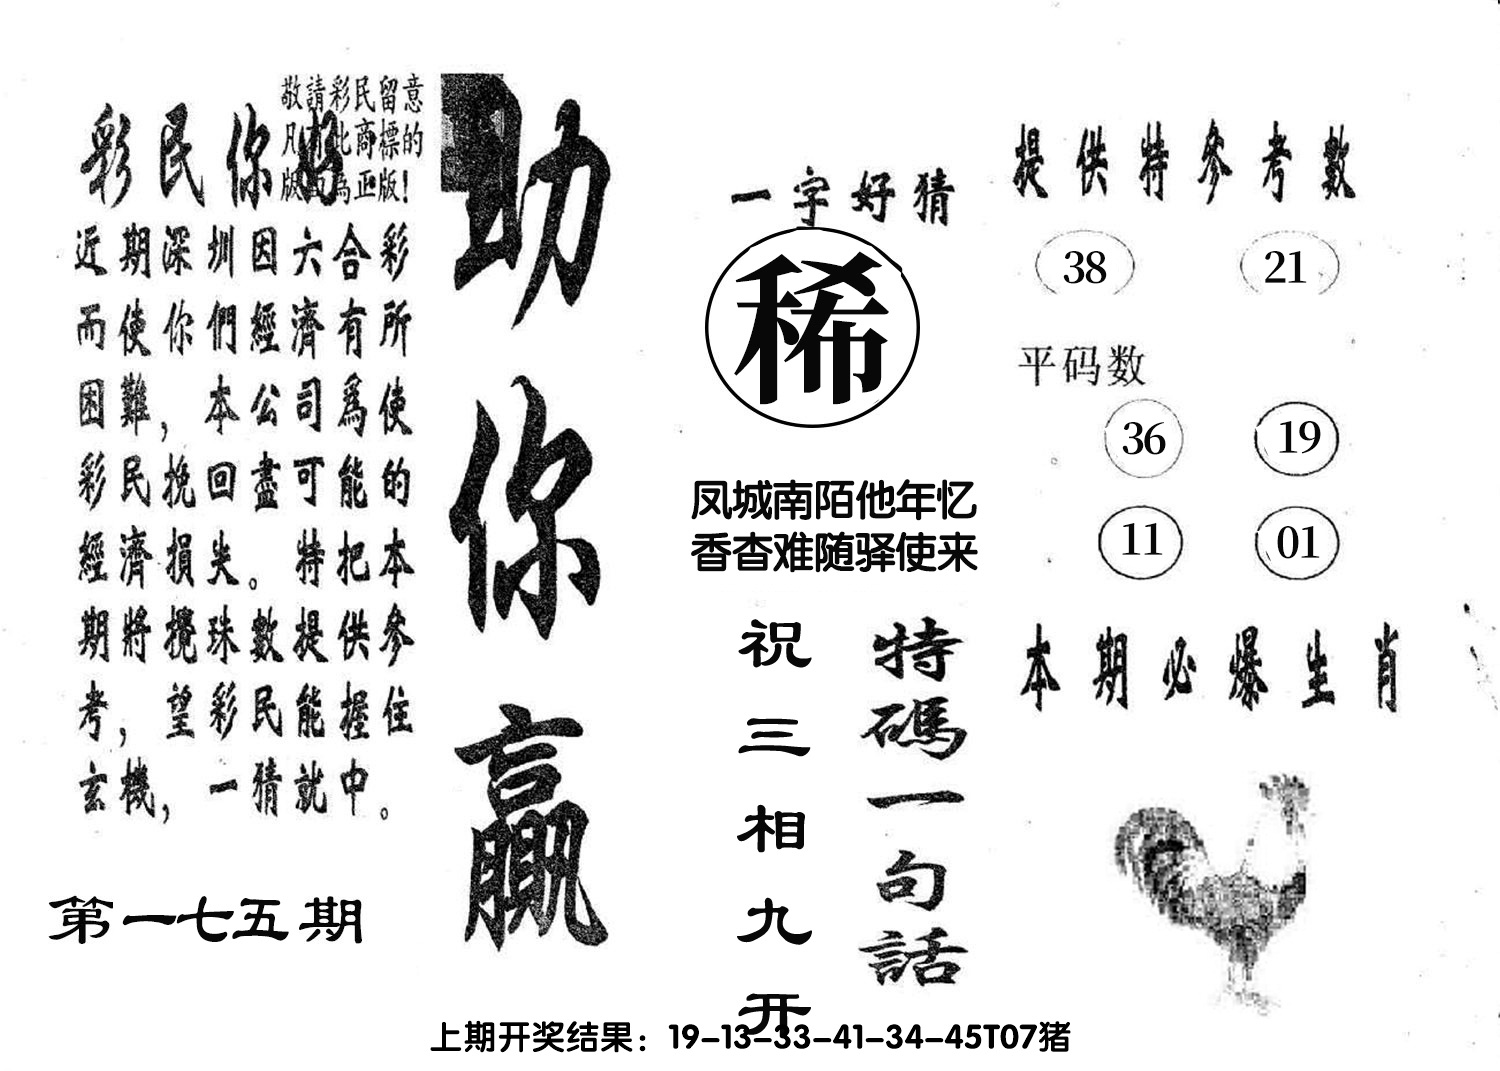 敬請彩民留意
凡有此商標的
版面為正版！
彩民你好
近期深圳因六合彩
而使你們經濟有所
困難，本公司爲使
彩民挽回盡可能的
經濟損失。特把本
期將攪珠數提供參
考，望彩民能握住
玄機，一猜就中。
第一七五期
助你贏
一字好猜
稀
凤城南陌他年忆
香杳难随驿使来
特碼一句話
祝三相九开
提供特參考數
38 21
平码数
36 19
11 01
本期必爆生肖
上期开奖结果：19-13-33-41-34-45T07猪